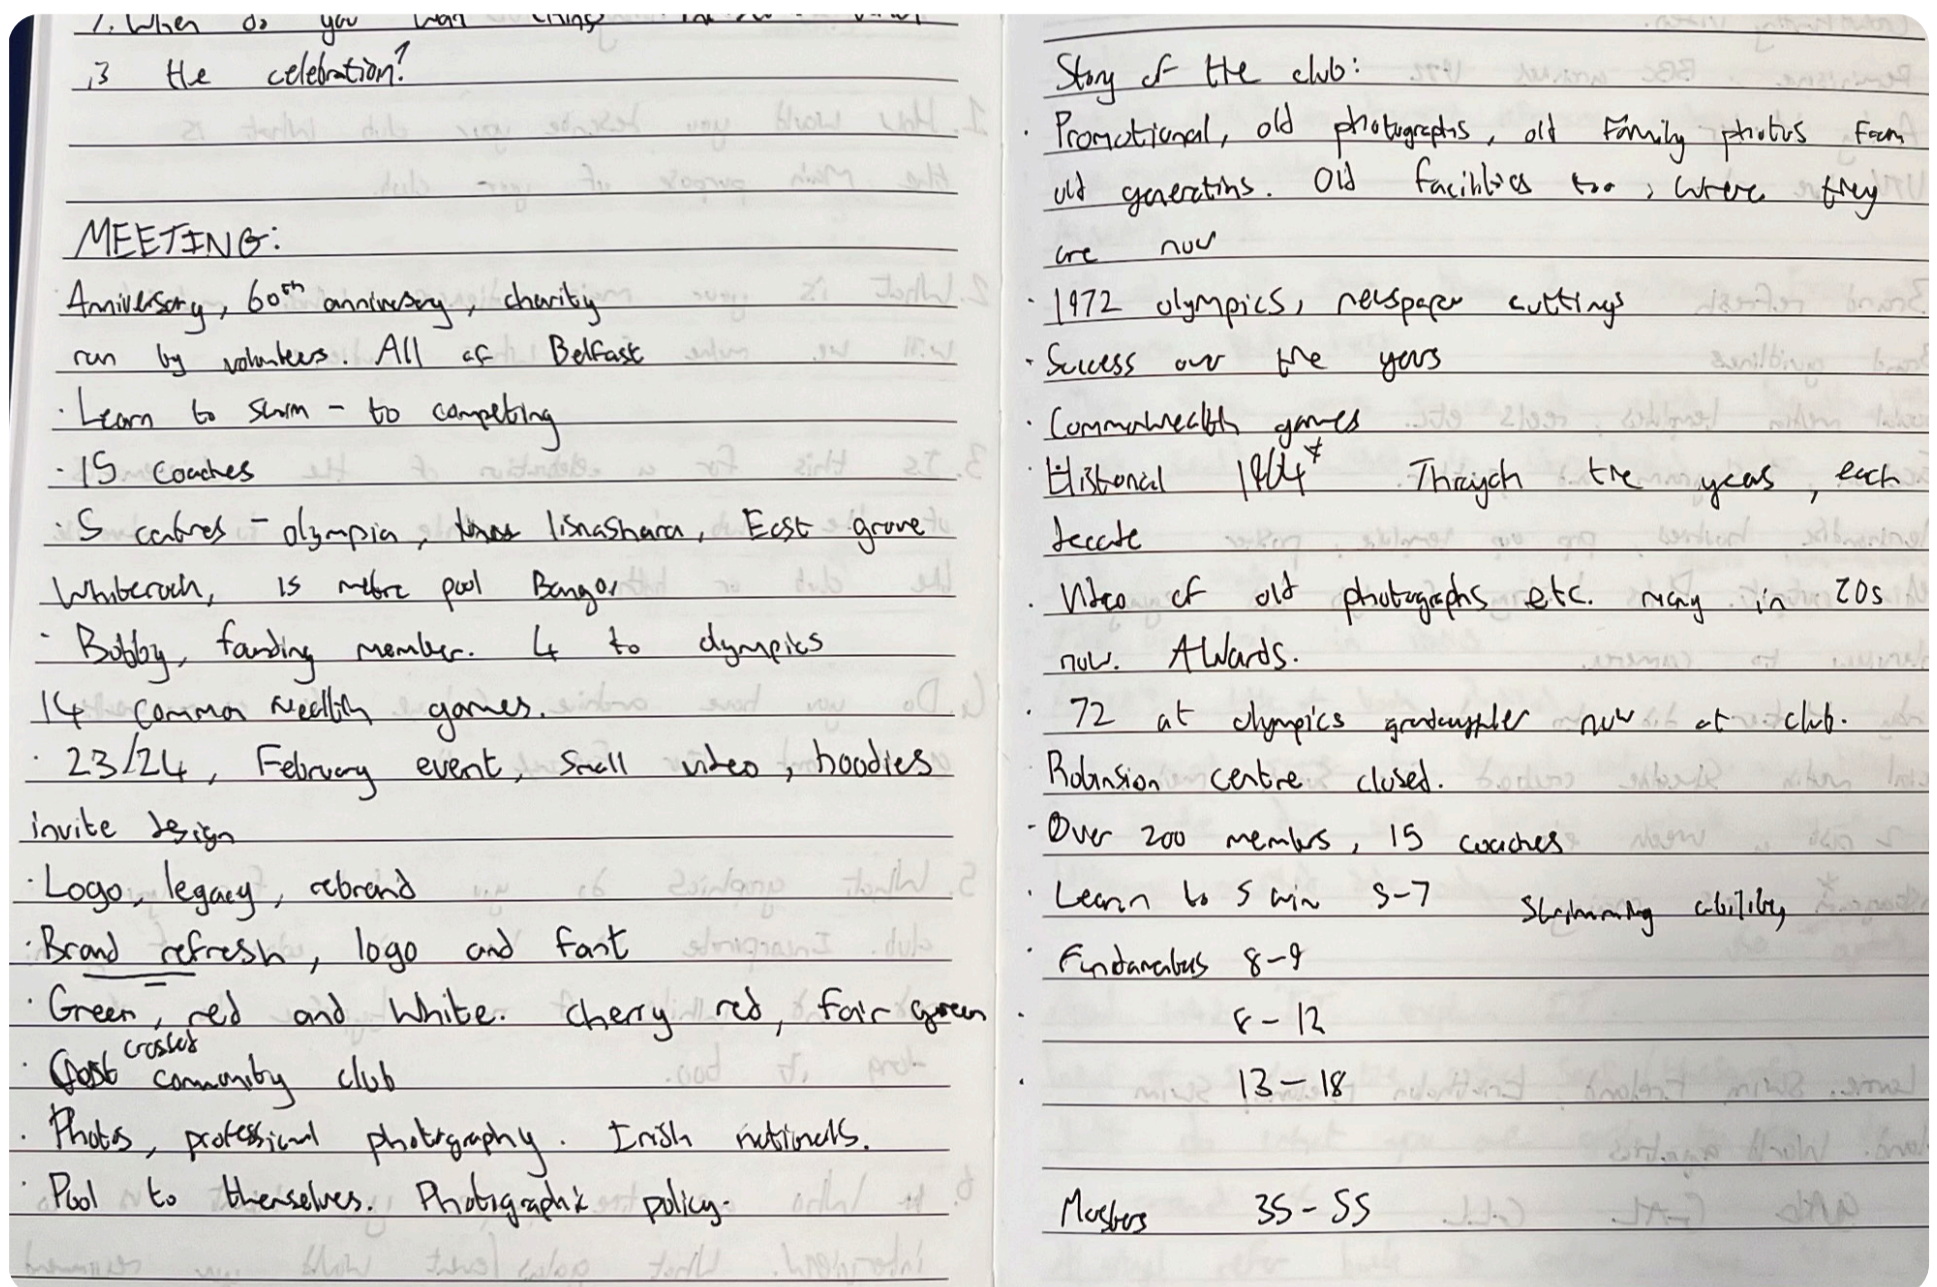 7. When do you want
is the celebration?
MEETING:
Anniversary, 60th anniversary, charity
run by volunteers. All of Belfast
· Learn to swim - to competing
· 15 Coaches
· 5 centres - olympia, lisnashara, East grove
Whiterock, 15 metre pool Bangor
· Bobby, founding member. 4 to olympics
14 common wealth games.
· 23/24, February event, small video, hoodies
invite design
· Logo, legacy, rebrand
· Brand refresh, logo and font
· Green, red and White. cherry red, fair green
crosses
· community club
· Photos, professional photography. Irish nationals.
· Pool to themselves. Photographic policy.
Story of the club:
· Promotional, old photographs, old family photos from
old generations. Old facilities too, where they
are now
· 1972 olympics, newspaper cuttings
· Success over the years
· Commonwealth games
· Historical 1964* Through the years, each
decade
· Video of old photographs etc. many in 70s
now. Awards.
· 72 at olympics granddaughter now at club.
Robinsion centre closed.
· Over 200 members, 15 coaches
· Learn to swim 5-7 Swimming ability,
· 8-9
· 8-12
· 13-18
Masters 35-55